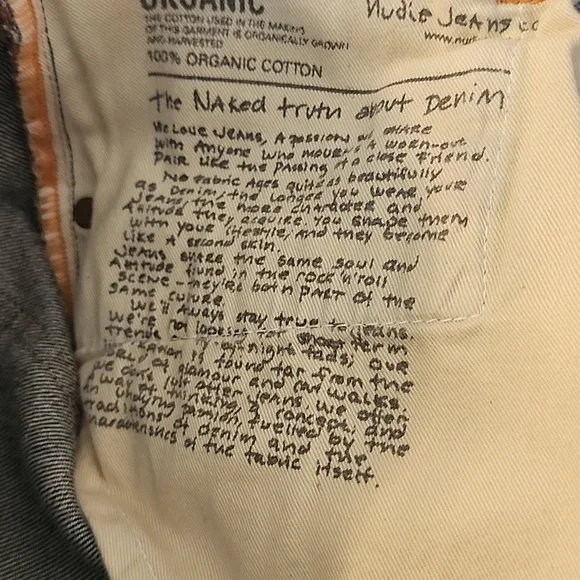 ORGANIC
Nudie Jeans co
THE COTTON USED IN THE MAKING
www.nud
OF THIS GARMENT IS ORGANICALLY GROWN
AND HARVESTED
100% ORGANIC COTTON
the NAked truth about DeniM
We Love Jeans, A passion we sHARe
with Anyone who mourns A worn-out
PAIR Like the PAssing of a close friend.
No fabric Ages quite as beautifully
as Denim, the longer you weAr your
JeAns the more chArActer and
Attitude they Acquire. You shape them
with your lifestyle, And they become
Like A second skin.
Jeans share the same soul and
Attitude found in the rock'n'roll
scene - they're both PART of the
same culture.
We'll Always stay true to jeans.
We're not looking for short term
trends or overnight fads, our
is found far from the
world of glamour and cat walks.
we don't just offer jeans, we offer
A way of thinking, A concept, and
An undying passion fuelled by the
traditions of denim and the
characteristics of the fabric itself.